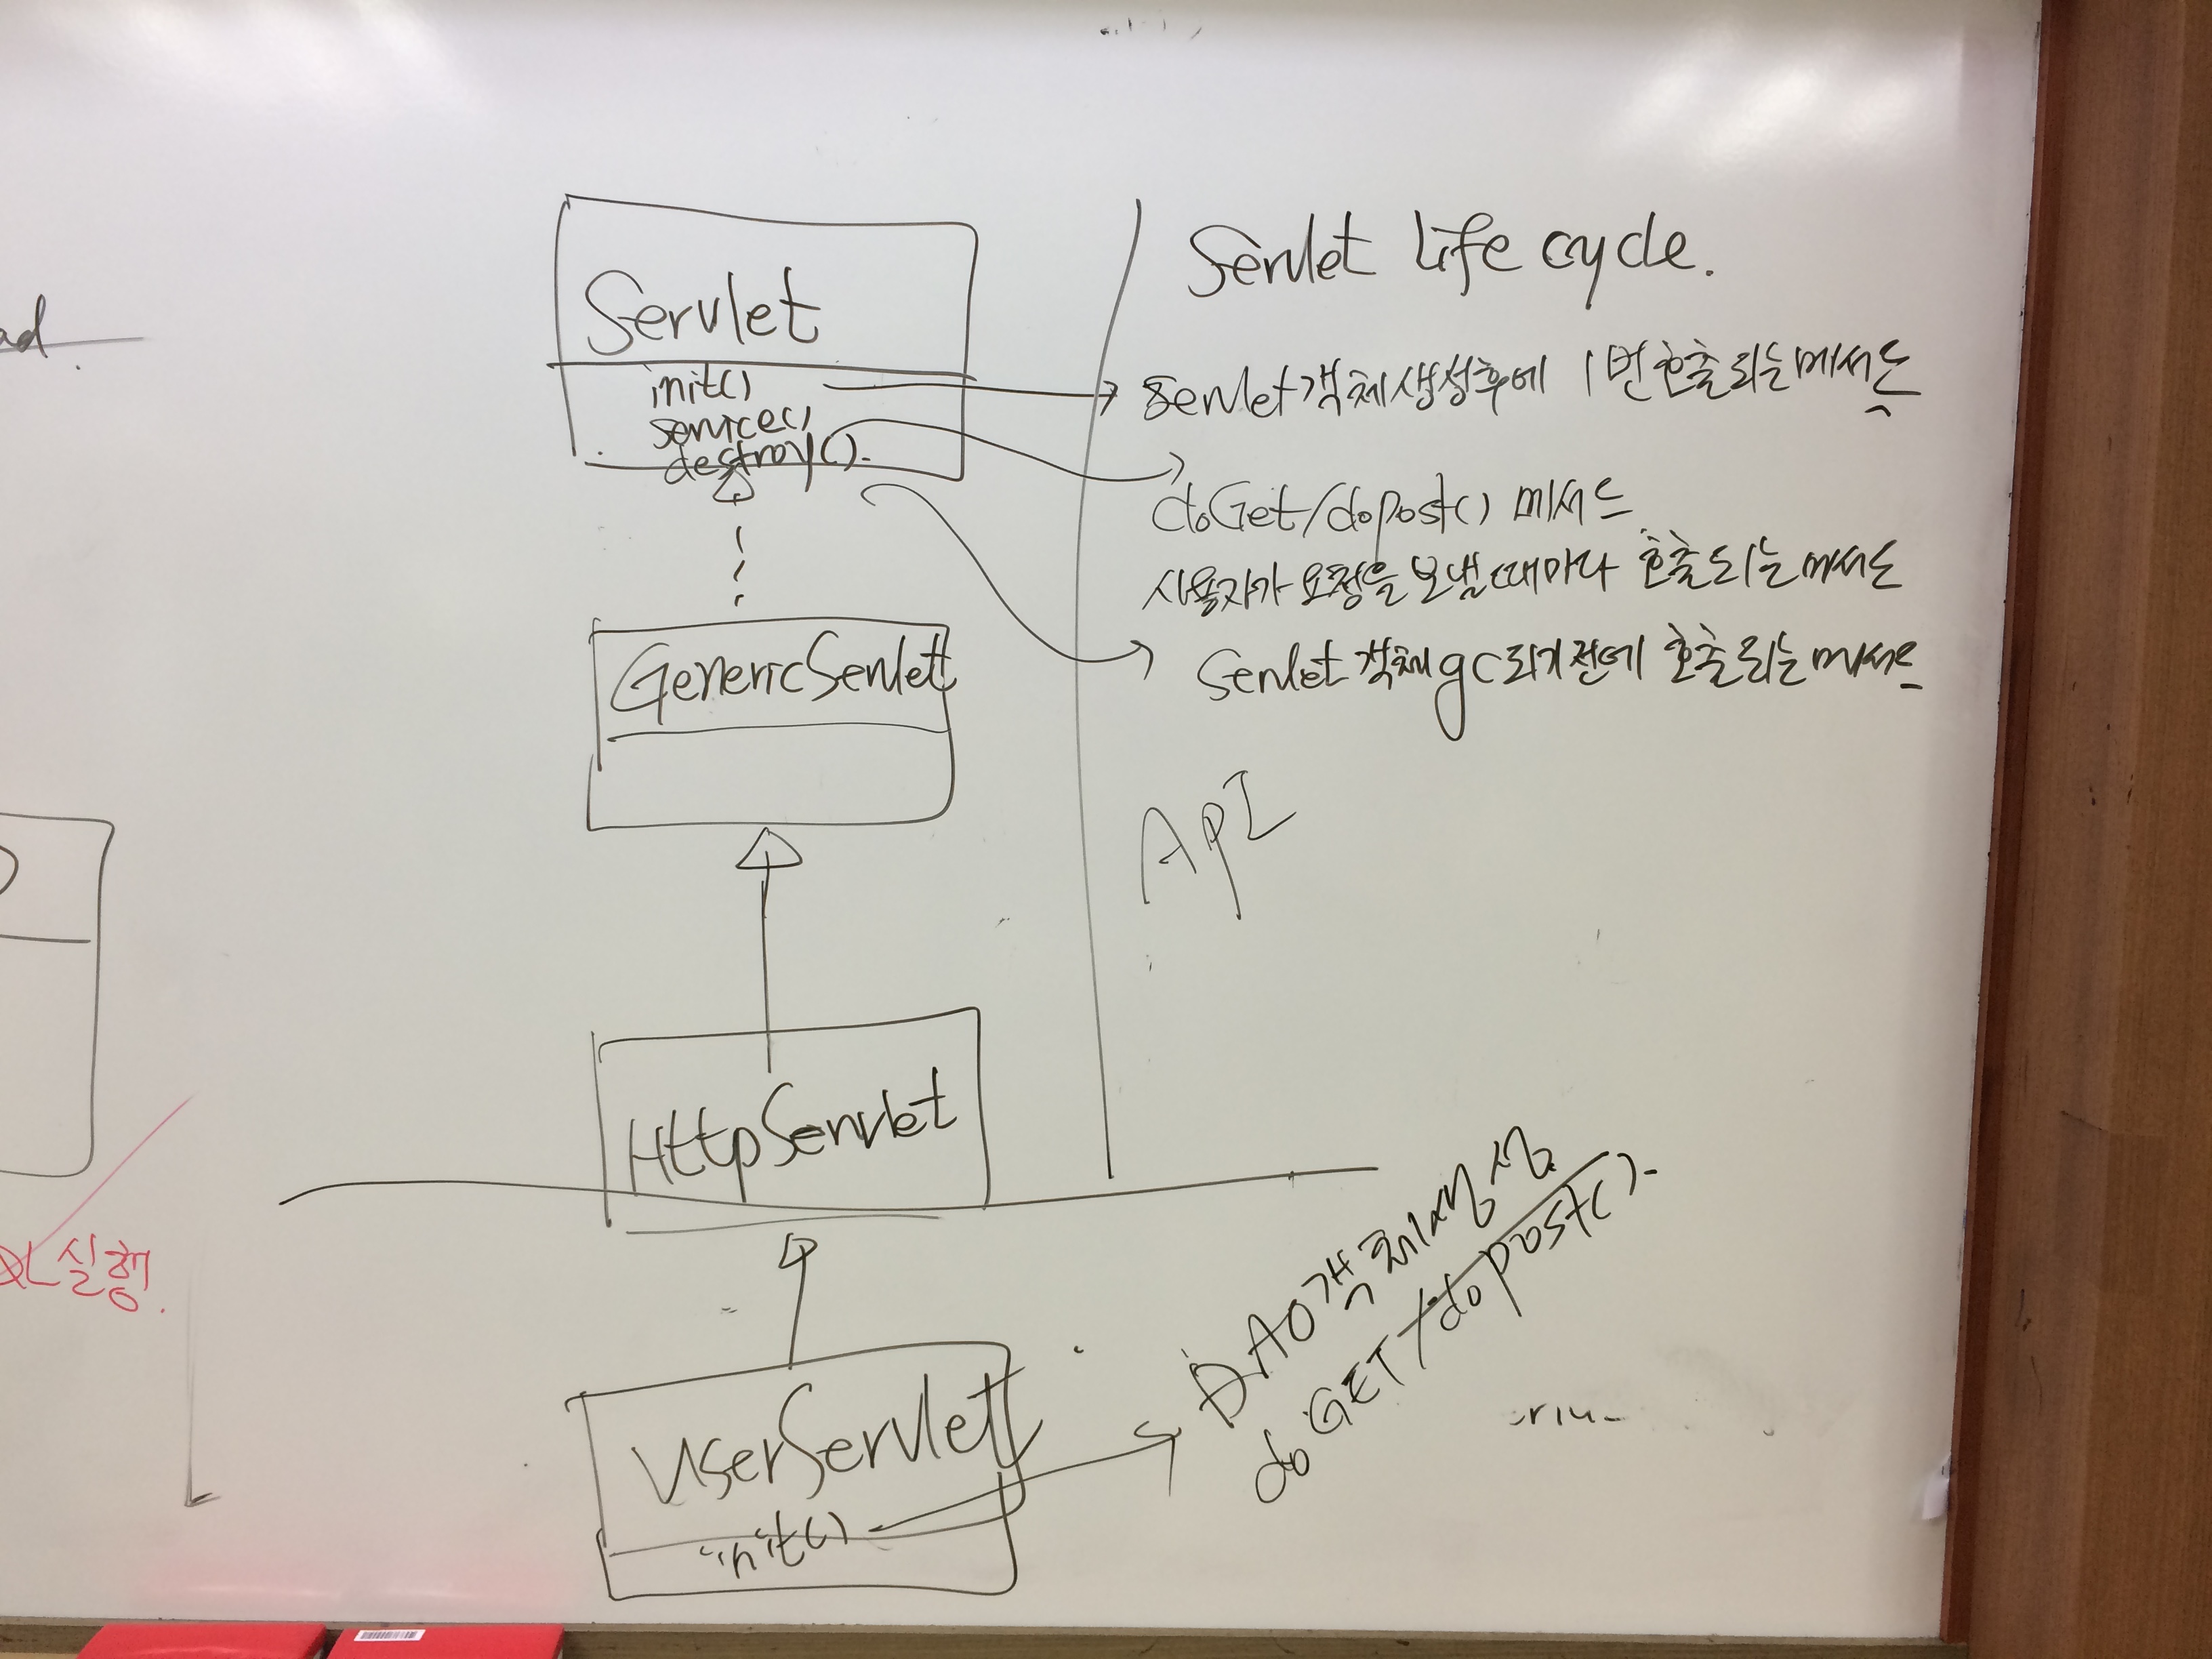 Servlet
init()
service()
destroy().
GenericServlet
HttpServlet
UserServlet
init()
Servlet Life cycle.
Servlet 객체생성후에 1번 호출되는 메서드
doGet/dopost() 메서드
사용자가 요청을 보낼때마다 호출되는 메서드
Servlet 객체 gc되기전에 호출되는 메서드
ApI
DAO객체생성
doGET/dopost().
실행.